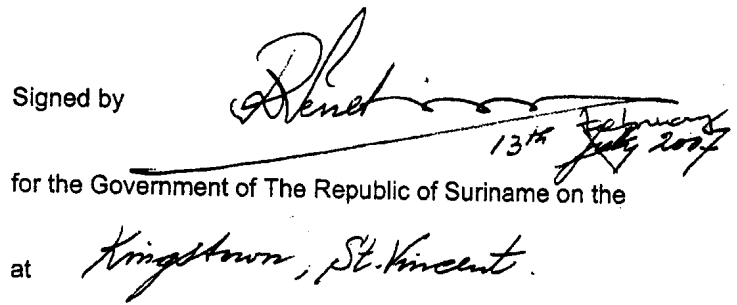 Signed by
13th February
July 2007
for the Government of The Republic of Suriname on the
at Kingstown, St. Vincent.